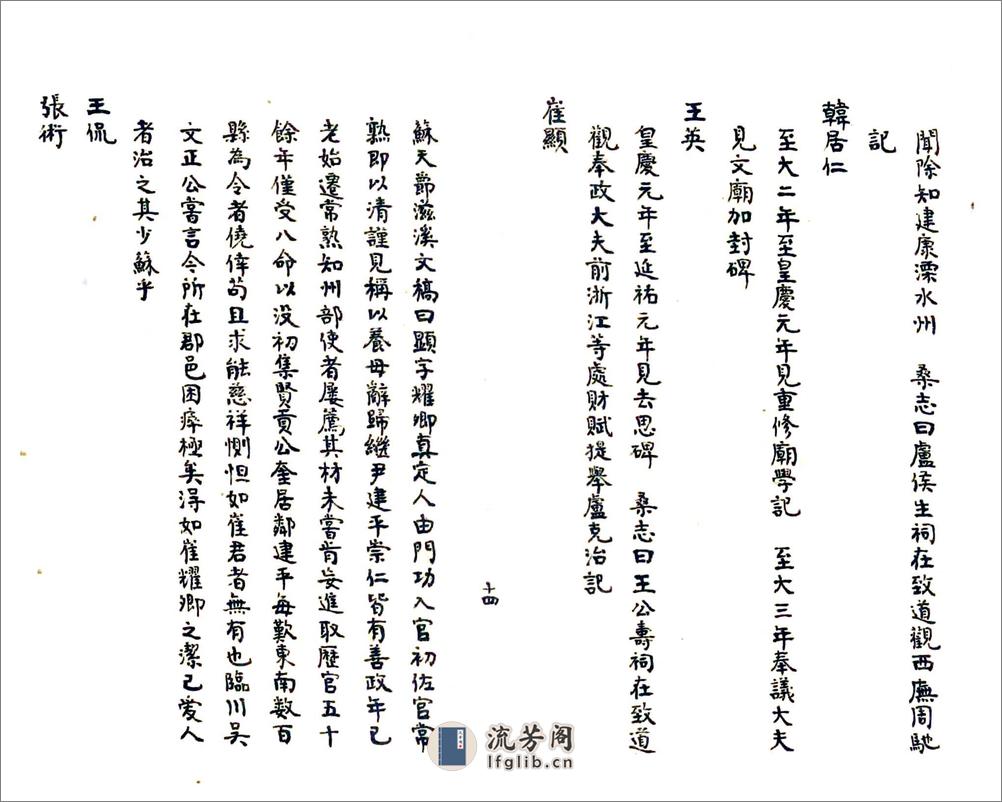 聞除知建康溧水州　桑志曰盧侯生祠在致道觀西廡周馳
記
韓居仁
至大二年至皇慶元年見重修廟學記　至大三年奉議大夫
見文廟加封碑
王英
皇慶元年至延祐元年見去思碑　桑志曰王公壽祠在致道
觀奉政大夫前浙江等處財賦提舉盧克治記
崔顯
十四
蘇天爵滋溪文稿曰顯字耀卿真定人由門功入官初佐官常
熟即以清謹見稱以養母辭歸繼尹建平崇仁皆有善政年已
老始遷常熟知州部使者屢薦其材未嘗肯妄進取歷官五十
餘年僅受八命以沒初集賢貢公奎居鄰建平每歎東南數百
縣為令者僥倖苟且求能慈祥惻怛如崔君者無有也臨川吴
文正公嘗言今所在郡邑困瘁極矣得如崔耀卿之潔己愛人
者治之其少蘇乎
王侃
張術
流芳阁
lfglib.cn